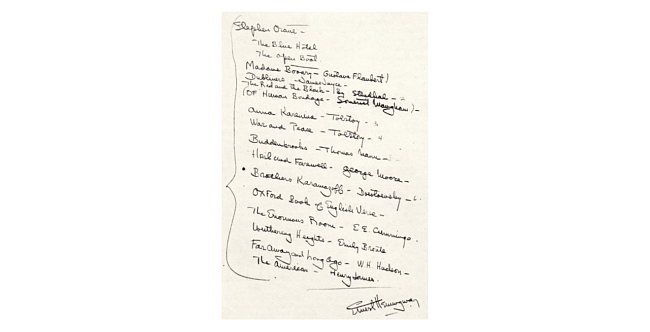 Stephen Crane -
The Blue Hotel
The Open Boat
Madame Bovary - Gustave Flaubert
Dubliners - James Joyce -
The Red and the Black - By Stendhal -
(Of Human Bondage - Somerset Maugham) -
Anna Karenina - Tolstoy -
War and Peace - Tolstoy -
Buddenbrooks - Thomas Mann -
Hail and Farewell - George Moore -
Brothers Karamazoff - Dostoevsky -
Oxford Book of English Verse -
The Enormous Room - E.E. Cummings.
Wuthering Heights - Emily Bronte
Far Away and Long Ago - W.H. Hudson -
The American - Henry James.
Ernest Hemingway